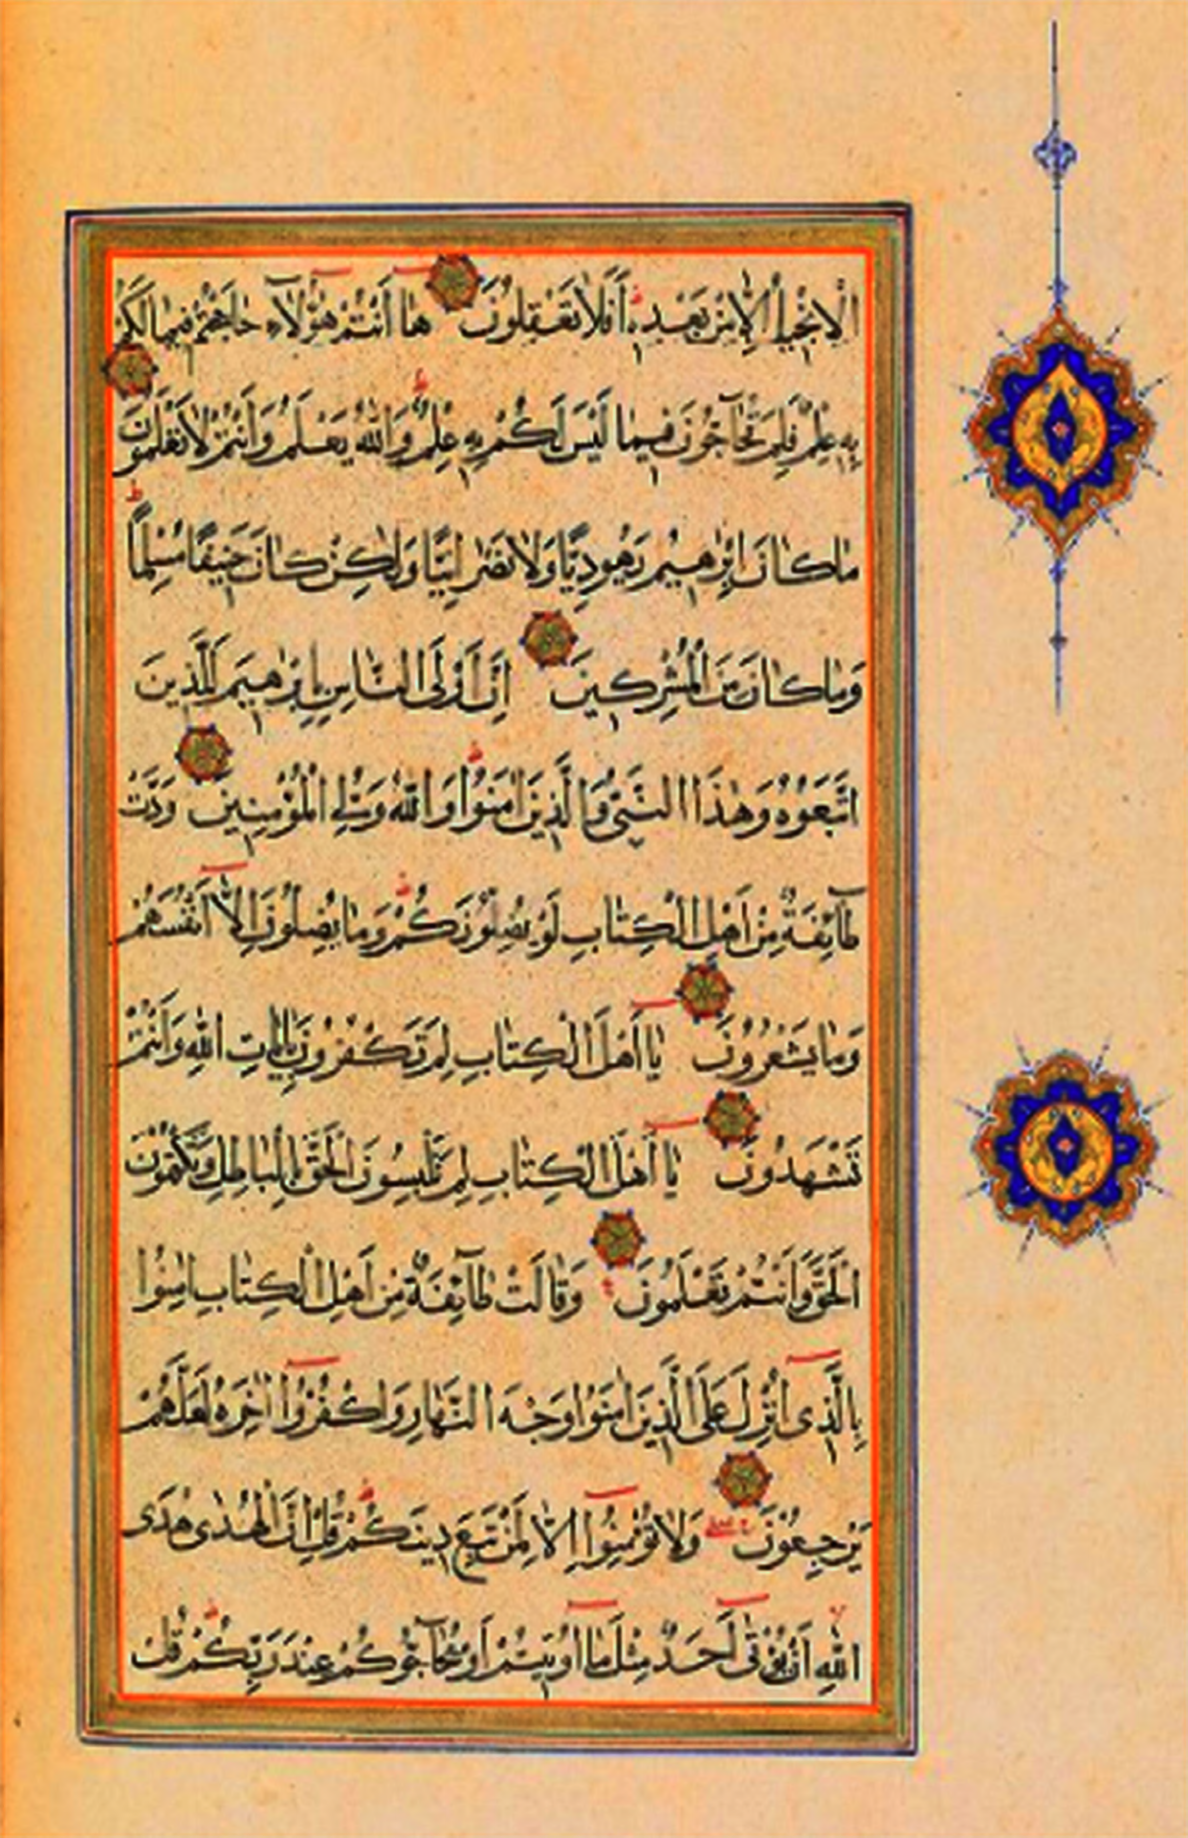 الْاِنْجِيلُ اِلَّا مِنْ بَعْدِهِ اَفَلَا تَعْقِلُونَ هَا اَنْتُمْ هٰؤُلَاءِ حَاجَجْتُمْ فِيمَا لَكُمْ
بِهِ عِلْمٌ فَلِمَ تُحَاجُّونَ فِيمَا لَيْسَ لَكُمْ بِهِ عِلْمٌ وَاللّٰهُ يَعْلَمُ وَاَنْتُمْ لَا تَعْلَمُونَ
مَا كَانَ اِبْرٰهِيمُ يَهُودِيًّا وَلَا نَصْرَانِيًّا وَلٰكِنْ كَانَ حَنِيفًا مُسْلِمًا
وَمَا كَانَ مِنَ الْمُشْرِكِينَ اِنَّ اَوْلَى النَّاسِ بِاِبْرٰهِيمَ لَلَّذِينَ
اتَّبَعُوهُ وَهٰذَا النَّبِيُّ وَالَّذِينَ اٰمَنُوا وَاللّٰهُ وَلِيُّ الْمُؤْمِنِينَ وَدَّتْ
طَآئِفَةٌ مِنْ اَهْلِ الْكِتَابِ لَوْ يُضِلُّونَكُمْ وَمَا يُضِلُّونَ اِلَّا اَنْفُسَهُمْ
وَمَا يَشْعُرُونَ يَا اَهْلَ الْكِتَابِ لِمَ تَكْفُرُونَ بِاٰيَاتِ اللّٰهِ وَاَنْتُمْ
تَشْهَدُونَ يَا اَهْلَ الْكِتَابِ لِمَ تَلْبِسُونَ الْحَقَّ بِالْبَاطِلِ وَتَكْتُمُونَ
الْحَقَّ وَاَنْتُمْ تَعْلَمُونَ وَقَالَتْ طَآئِفَةٌ مِنْ اَهْلِ الْكِتَابِ اٰمِنُوا
بِالَّذِى اُنْزِلَ عَلَى الَّذِينَ اٰمَنُوا وَجْهَ النَّهَارِ وَاكْفُرُوا اٰخِرَهُ لَعَلَّهُمْ
يَرْجِعُونَ وَلَا تُؤْمِنُوا اِلَّا لِمَنْ تَبِعَ دِينَكُمْ قُلْ اِنَّ الْهُدٰى هُدَى
اللّٰهِ اَنْ يُؤْتٰى اَحَدٌ مِثْلَ مَا اُوتِيتُمْ اَوْ يُحَآجُّوكُمْ عِنْدَ رَبِّكُمْ قُلْ